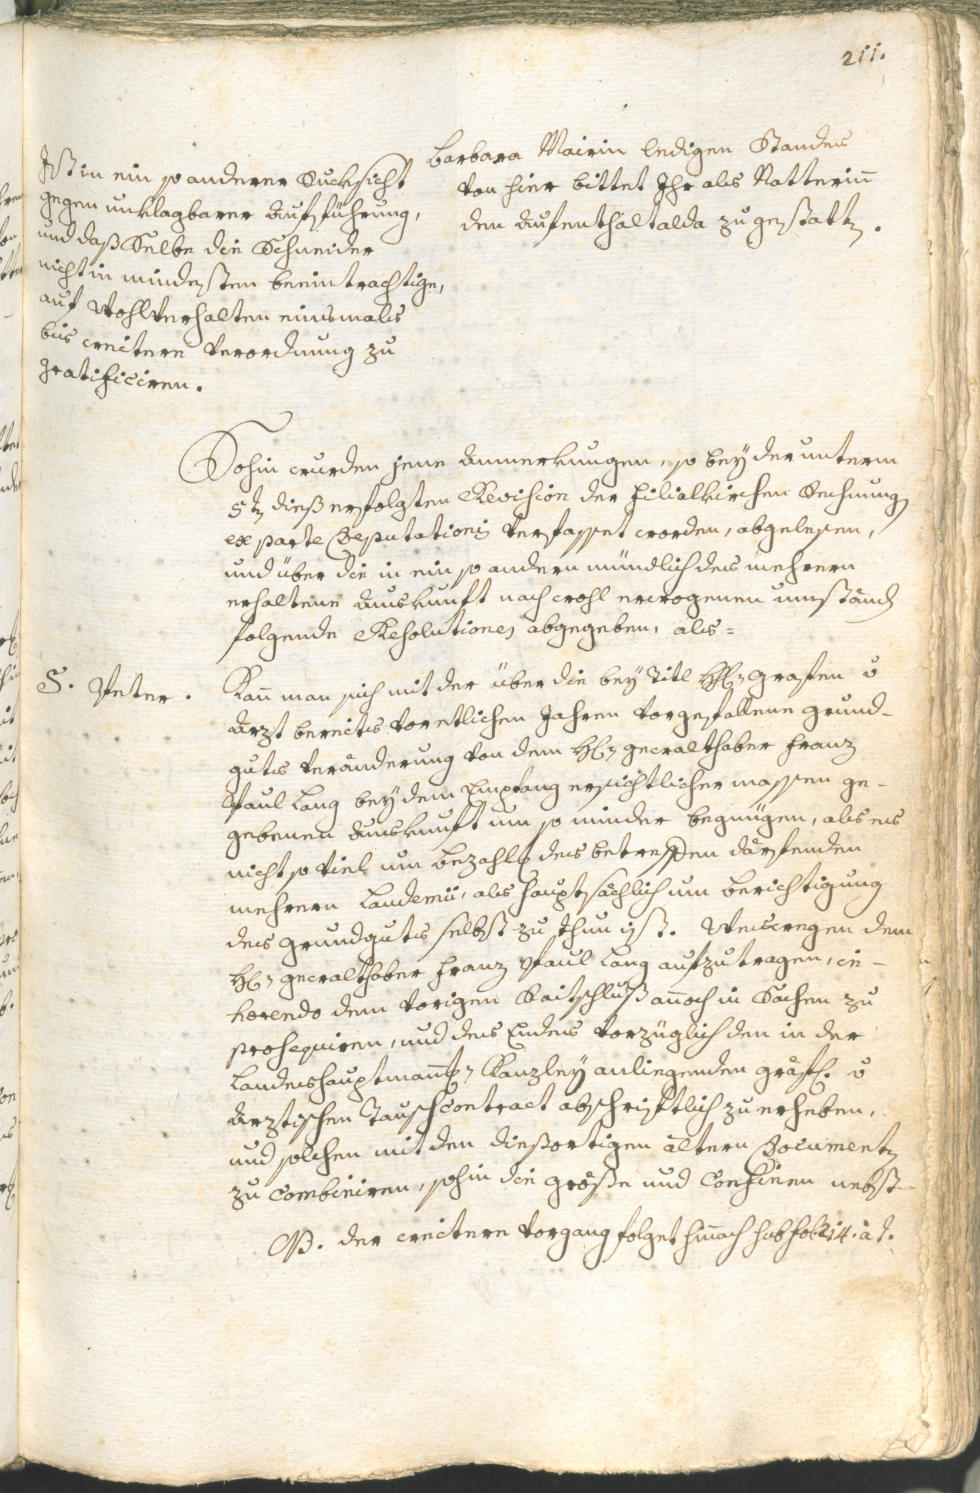 211.
Barbara Mairin ledigen Standes
von hier bittet Ihr als Natterin̄
den aufenthalt alda zugestatt̄.
Ist in ein so anderer Rucksicht
gegen unklagbarer aufführung,
und daß Selbe die Schneider
nicht in mindesten beeintrachtige,
auf Wohlverhalten einsmals
bis weitere Verordnung zu
gratificiren.
Sohin wurden jene anmerkungen, so bey der unterm
5t dieß erfolgten Revision der filialkirchen Rechnung
ex parte Deputationis verfasset worden, abgelesen,
und über die in ein so andern mündlich des mehrern
erhaltene auskunft nach wohl erwogenen umständ
folgende Resolutiones abgegeben, als =
S. Peter.
Kan̄ man sich mit der über die bey Titl H: Grafen v
Arzt bereits vor etlichen Jahren vorgefallene grund-
guts veränderung von dem H: gewalthaber Franz
Paul Lang bey dem Empfang ersichtlicher massen ge-
gebenen auskunft um so minder begnügen, als es
nicht so viel um bezahl des betreffen därfenden
mehrern Laudemii, als hauptsächlich um berichtigung
des grundguts selbst zu thun ist. Weswegen dem
H: gewalthaber Franz Paul Lang aufzutragen, in-
haerendo dem vorigen Raitschluß an̄och in Sachen zu
prosequiren, und des Endens vorzüglich den in der
Landeshauptman̄: Kanzley anliegenden gräfl: v
Arztischen Tauschcontract abschriftlich zu erheben,
und solchen mit den dießortigen ältern Document
zu combiniren, sohin die größe und Confinen nebst
NB. der weitere vorgang folget hin̄ach sub fol: 214. à t.